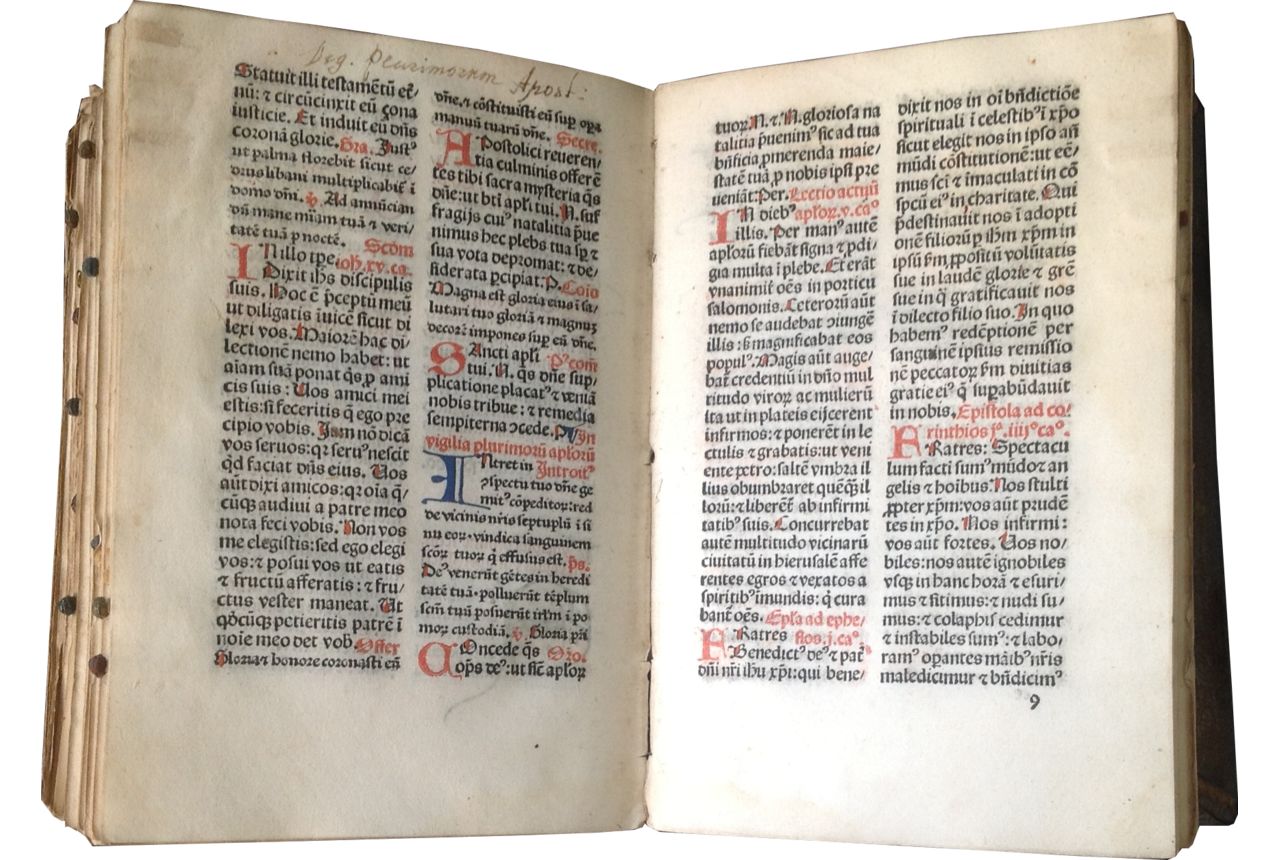 Vig. plurimorum Apost:
Statuit illi testamētū et̄/
nū: ⁊ circūcinxit eū çona
iusticie. Et induit eū dn̄s
coronā glorie. Gra. Just⁹
ut palma florebit sicut ce/
drus libani multiplicabit̄ ī
domo dn̄i. ꝟ. Ad annūcian
dū mane mīam tuā ⁊ veri/
tatē tuā ꝑ noctē. Scōm
IN illo tp̄e ioh̄. xv. ca.
Dixit ih̄s discipulis
suis. Hoc ē p̄ceptū meū
ut diligatis īuicē sicut di
lexi vos. Maiorē hac di/
lectionē nemo habet: ut
aīam suā ponat q̄s ꝓ ami
cis suis: Uos amici mei
estis: si feceritis q̄ ego pre
cipio vobis. Jam nō dicā
vos seruos: qꝛ seru⁹ nescit
qd̄ faciat dn̄s eius. Uos
aūt dixi amicos: qꝛ oīa q̄/
cūqꝫ audiui a patre meo
nota feci vobis. Non vos
me elegistis: sed ego elegi
vos: ⁊ posui vos ut eatis
⁊ fructū afferatis: ⁊ fru/
ctus vester maneat. Ut
qd̄cūqꝫ petieritis patrē ī
noīe meo det vob̄. Offer
Gloria ⁊ honore coronasti eū
dn̄e, ⁊ cōstituisti eū suꝑ oꝑa
manuū tuarū dn̄e. Secre.
APostolici reueren/
tia culminis offerē
tes tibi sacra mysteria q̄s
dn̄e: ut bt̄i apl̄i tui. N. suf
fragijs cui⁹ natalitia p̄ue
nimus hec plebs tua sp̄ ⁊
sua vota depromat: ⁊ de/
siderata ꝑcipiat: P. Cōio
Magna est gloria eius ī sa/
lutari tuo gloriā ⁊ magnuꝫ
decorē impones suꝑ eū dn̄e.
SAncti apl̄i P⁹com̄
tui. N. q̄s dn̄e sup/
plicatione placat⁹ ⁊ veniā
nobis tribue: ⁊ remedia
sempiterna ↄcede. P In
vigilia plurimorū apl̄orū
INtret in Introit⁹
ↄspectu tuo dn̄e ge
mit⁹ cōpeditoꝝ: red
de vicinis nr̄is septuplū ī si
nu eoꝝ. vindica sanguinem
scōꝝ tuoꝝ q̄ effusus est. p̄s.
De⁹ venerūt gētes in heredi
tatē tuā. polluerūt tēplum
scm̄ tuū posuerūt irl̄m ī po
moꝝ custodiā. ꝟ. Gloria pr̄i
COncede q̄s Oro.
oīp̄s de⁹: ut sic̄ apl̄oꝝ
tuoꝝ. N. ⁊. N. gloriosa na
talitia p̄uenim⁹ sic ad tua
bn̄ficia ꝓmerenda maie/
statē tuā ꝓ nobis ipsi pre
ueniāt: Per. Lectio actuū
IN dieb⁹ apl̄oꝝ. v. ca⁰
illis. Per man⁹ autē
apl̄orū fiebāt signa ⁊ ꝓdi/
gia multa ī plebe. Et erāt
vnanimit̄ oēs in porticu
salomonis. Ceterorū aūt
nemo se audebat ↄiungē
illis: s̄ magnificabat eos
popul⁹. Magis aūt auge/
bat̄ credentiū in dn̄o mul
titudo viroꝝ ac mulierū
Ita ut in plateis eijscerent
infirmos: ⁊ ponerēt in le
ctulis ⁊ grabatis: ut veni
ente petro: saltē vmbra il
lius obumbraret quēqꝫ il
lorū: ⁊ liberēt̄ ab infirmi
tatib⁹ suis. Concurrebat
autē multitudo vicinarū
ciuitatū in hierusalē affe
rentes egros ⁊ vexatos a
spiritib⁹ īmundis: q̄ cura
bant̄ oēs. Epl̄a ad ephe/
FRatres sios. j. ca⁰.
Benedict⁹ de⁹ ⁊ pat̄
dn̄i nr̄i ih̄u xp̄i: qui bene/
dixit nos in oī bn̄dictiōe
spirituali ī celestib⁹ ī xp̄o
sicut elegit nos in ipso an̄
mūdi cōstitutionē: ut eē/
mus scī ⁊ īmaculati in cō
spcū ei⁹ in charitate. Qui
p̄destinauit nos ī adopti
onē filiorū ꝑ ih̄m xp̄m in
ipsū s̄m ꝓpositū volūtatis
sue in laudē glorie ⁊ grē
sue in q̄ gratificauit nos
ī dilecto filio suo. In quo
habem⁹ redēptionē per
sanguinē ipsius remissio
nē peccatoꝝ s̄m diuitias
gratie ei⁹ q̄ suꝑabūdauit
in nobis. Epistola ad co/
rinthios j⁰. iiij⁰ ca⁰.
FRatres: Spectacu
lum facti sum⁹ mūdo ⁊ an
gelis ⁊ hoībus. Nos stulti
ꝓpter xp̄m: vos aūt prudē
tes in xp̄o. Nos infirmi:
vos aūt fortes. Uos no/
biles: nos autē ignobiles
vsqꝫ in hanc horā ⁊ esuri/
mus ⁊ sitimus: ⁊ nudi su/
mus: ⁊ colaphis cedimur
⁊ instabiles sum⁹: ⁊ labo/
ram⁹ oꝑantes māib⁹ nr̄is
maledicimur ⁊ bn̄dicim⁹
9